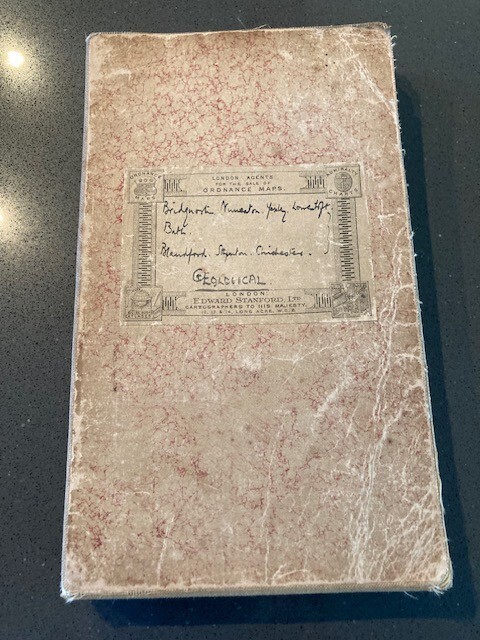 LONDON AGENTS
FOR THE SALE OF
ORDNANCE MAPS
ORDNANCE
MAPS
ADMIRALTY
CHARTS
Bridgnorth Nuneaton. Yaxley. Lowestoft.
Bath
Blandford. Steyning - Chichester.
GEOLOGICAL
LONDON
EDWARD STANFORD, LTD
CARTOGRAPHERS TO HIS MAJESTY,
12, 13 & 14, LONG ACRE, W.C.2.